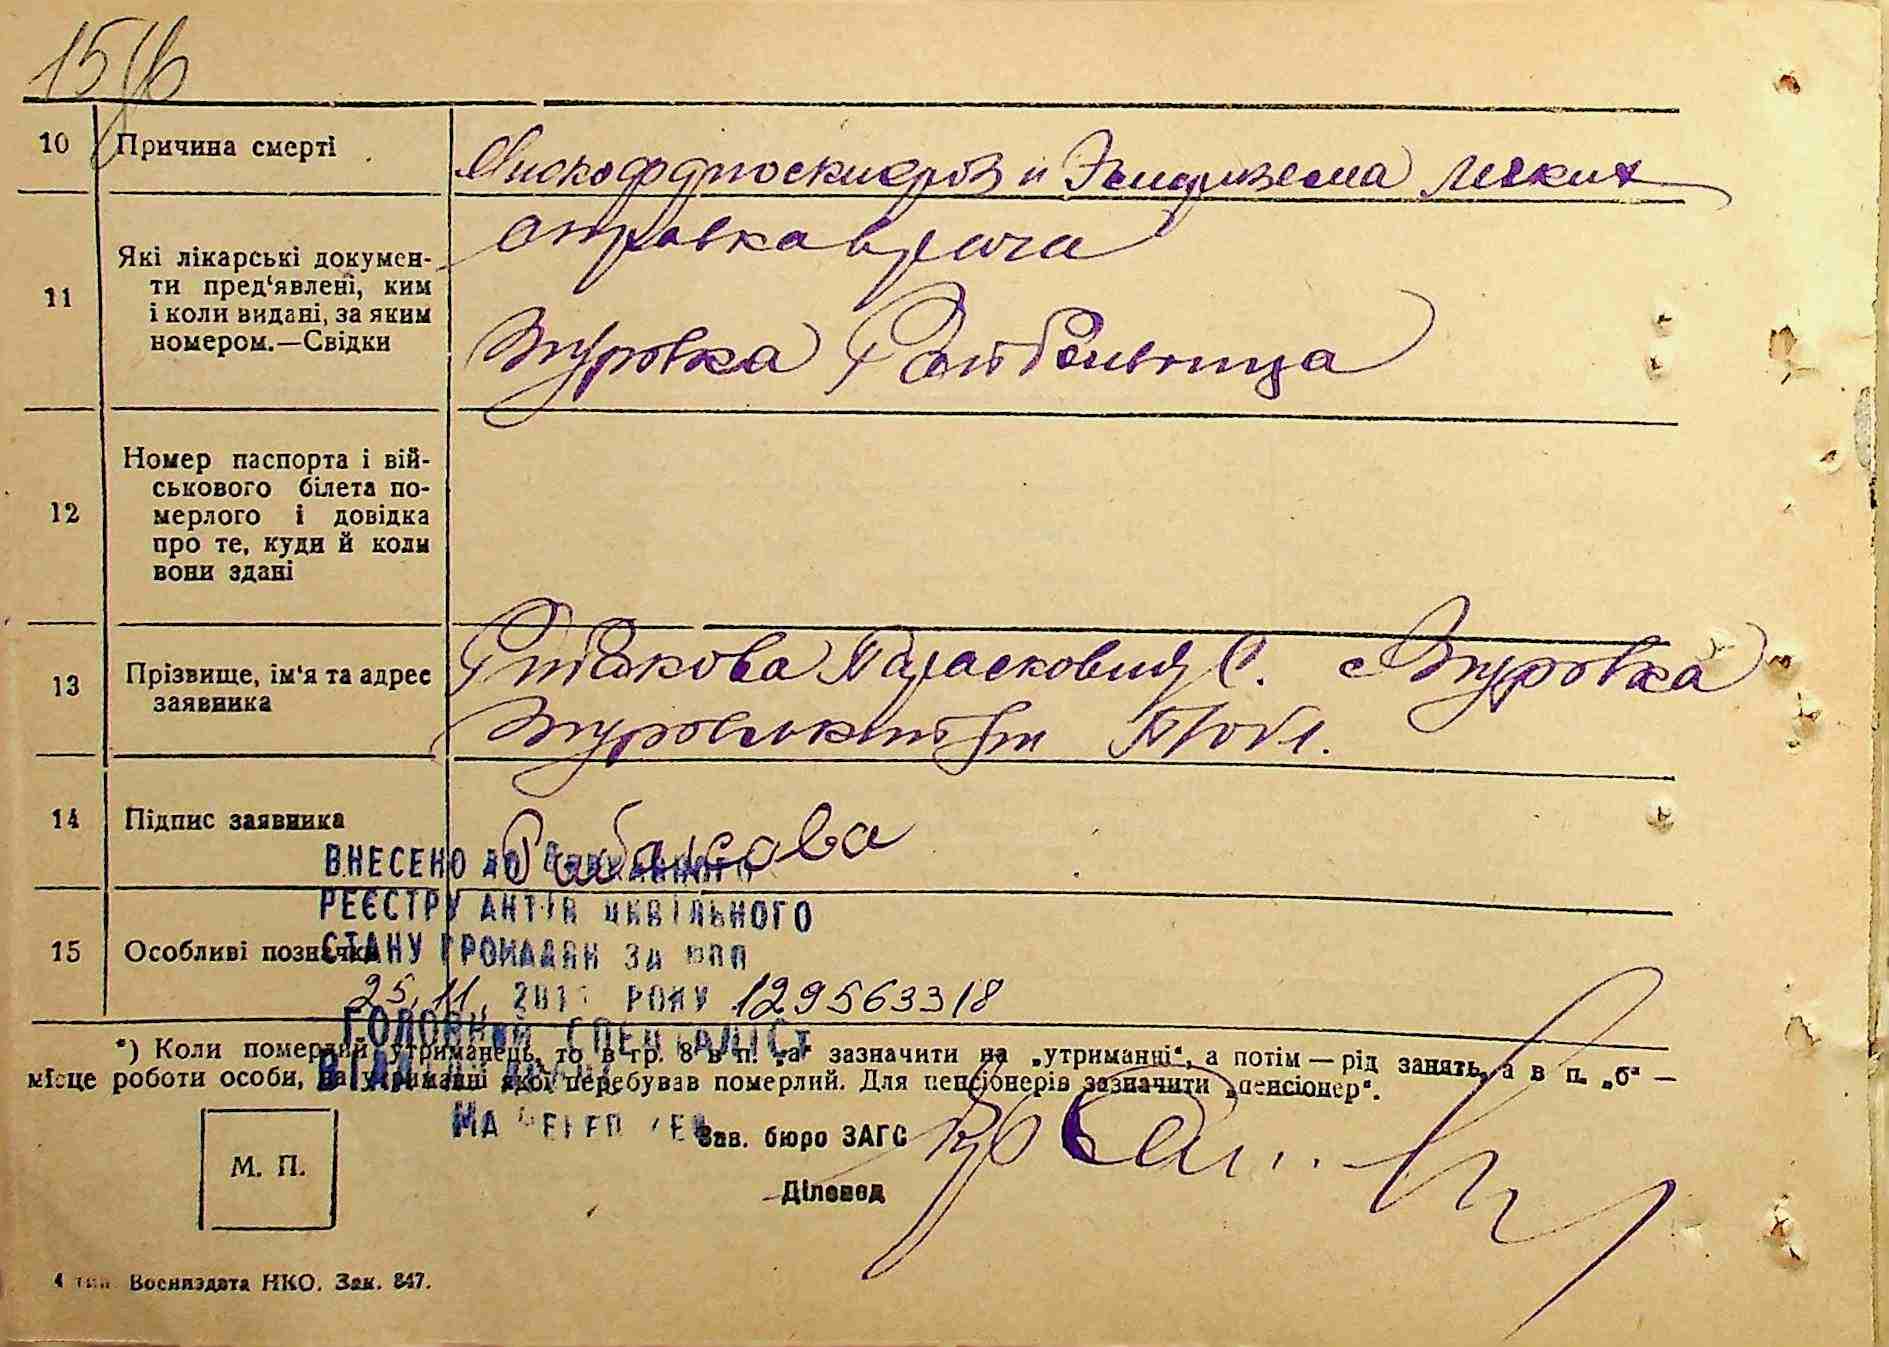 15
10 Причина смерті
и Эмфизема легких
11 Які лікарські докумен-
ти пред'явлені, ким
і коли видані, за яким
номером.—Свідки
справка врача
Згуровка Райбольница
12 Номер паспорта і вій-
ськового білета по-
мерлого і довідка
про те, куди й коли
вони здані
13 Прізвище, ім'я та адрес
заявника
Рибакова С. с Згуровка
14 Підпис заявника
Рибакова
ВНЕСЕНО ДО ДЕРЖАВНОГО
РЕЄСТРУ АКТІВ ЦИВІЛЬНОГО
СТАНУ ГРОМАДЯН ЗА
15 Особливі позначки
25.11. РОКУ 129563318
ГОЛОВНИЙ СПЕЦІАЛІСТ
*) Коли померлий утриманець, то в гр. 8 в п. „а“ зазначити на „утриманні“, а потім — рід занять, а в п. „б“ —
місце роботи особи, на утриманні якої перебував померлий. Для пенсіонерів зазначити „пенсіонер“.
Зав. бюро ЗАГС
М. П.
Діловод
Воениздата НКО. Зак. 847.